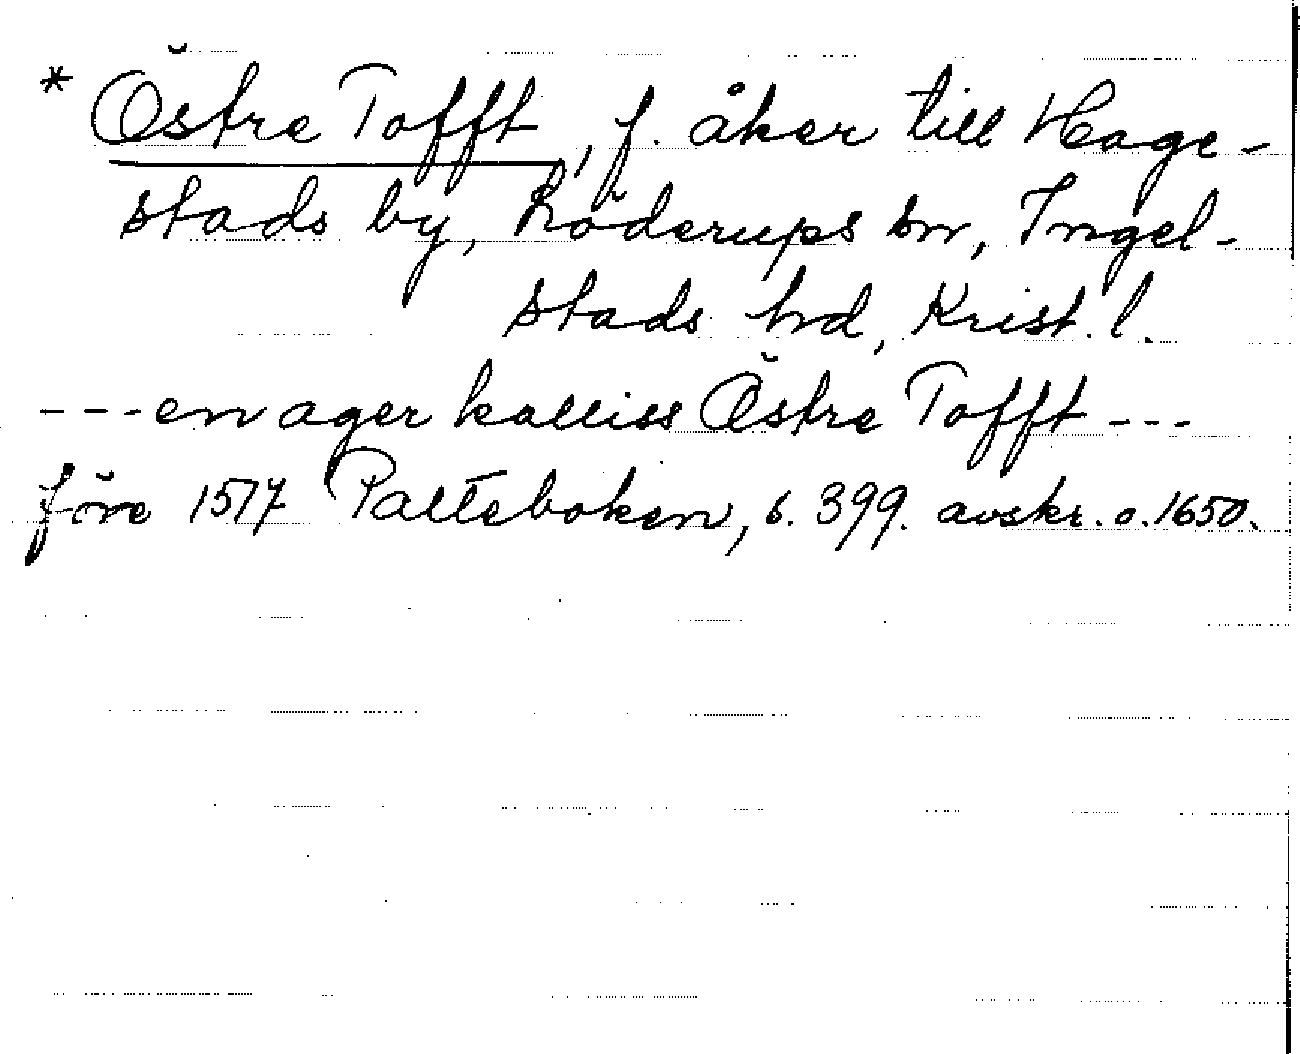 * Östre Tofft, f. åker till Hage-
stads by, Löderups sn, Ingel-
stads hd, Krist. l.
---en ager kalliss Östre Tofft---
före 1577 Palteboken, s. 399. avskr. o. 1650.